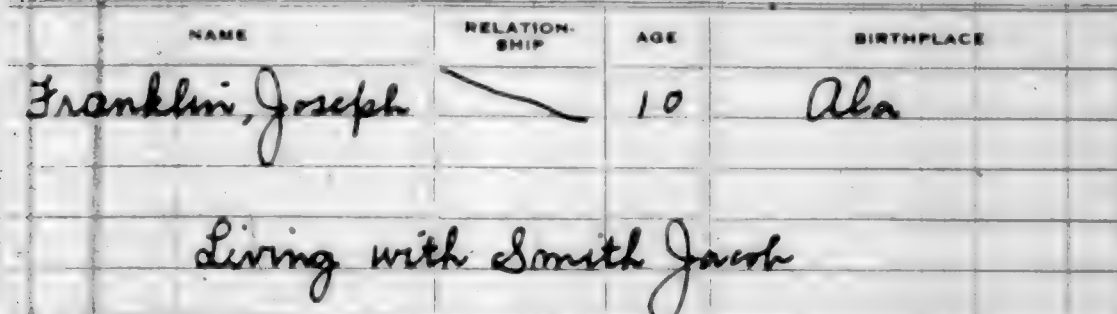 NAME RELATION-SHIP AGE BIRTHPLACE
Franklin, Joseph 10 Ala
Living with Smith Jacob